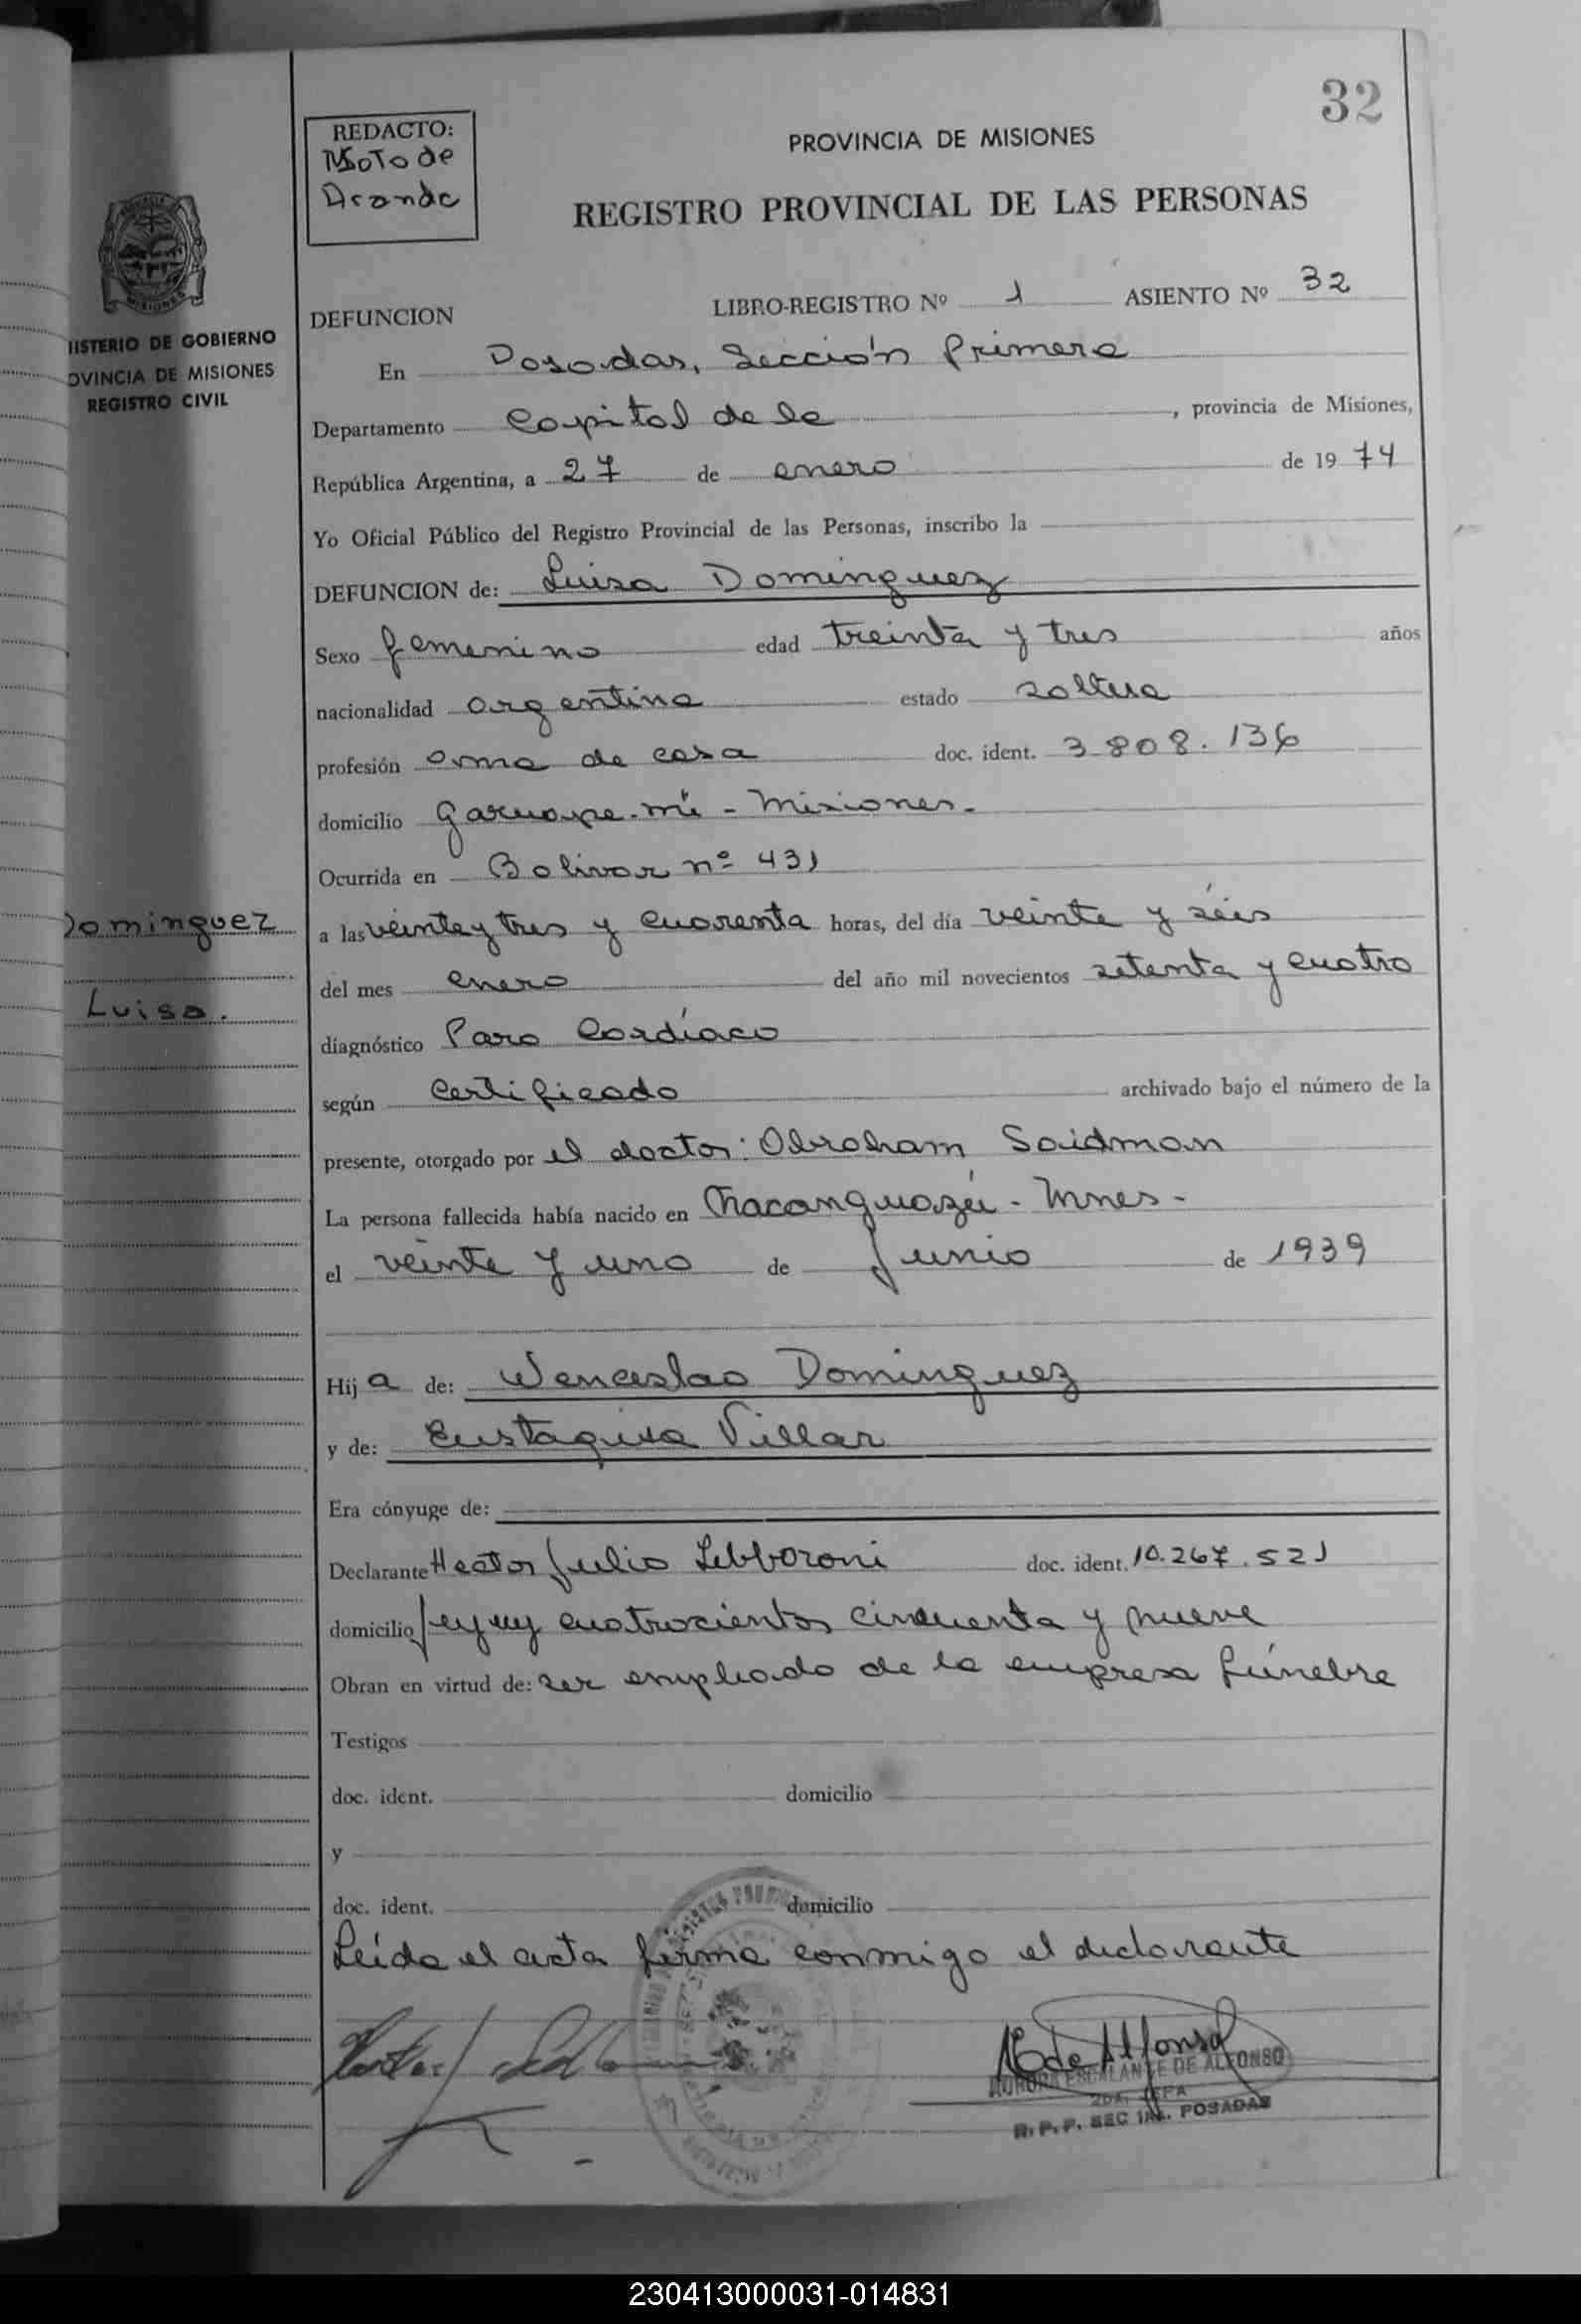 32
REDACTO:
MSoto de
Aranda
PROVINCIA DE MISIONES
REGISTRO PROVINCIAL DE LAS PERSONAS
MISIONES
ISTERIO DE GOBIERNO
OVINCIA DE MISIONES
REGISTRO CIVIL
DEFUNCION LIBRO-REGISTRO Nº 1 ASIENTO Nº 32
En Posadas, Sección Primera
Departamento Capital de la , provincia de Misiones,
República Argentina, a 27 de enero de 19 74
Yo Oficial Público del Registro Provincial de las Personas, inscribo la
DEFUNCION de: Luisa Dominguez
Sexo femenino edad treinta y tres años
nacionalidad argentina estado soltera
profesión ama de casa doc. ident. 3.808.136
domicilio Garuape-mí - Misiones-
Ocurrida en Bolivar nº 431
Dominguez
Luisa.
a las veinte y tres y cuarenta horas, del día veinte y séis
del mes enero del año mil novecientos setenta y cuatro
diagnóstico Paro Cardíaco
según Certificado archivado bajo el número de la
presente, otorgado por el doctor: Abraham Saidman
La persona fallecida había nacido en Chacanguazú - Mnes-
el veinte y uno de Junio de 1939
Hij a de: Wenceslao Dominguez
y de: Eustaquia Villar
Era cónyuge de:
Declarante Hector Julio Lebboroni doc. ident. 10.267.521
domicilio Jujuy cuatrocientos cincuenta y nueve
Obran en virtud de: ser empleado de la empresa fúnebre
Testigos
doc. ident. domicilio
y
doc. ident. domicilio
Leída el acta firma conmigo el declarante
AE de Alfonso
AURORA ESCALANTE DE ALFONSO
2da. JEFA
R. P. P. SEC 1ra. POSADAS
230413000031-014831